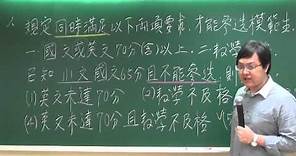 規定同時滿足以下兩項要求,才能參選模範生.
一.國文或英文70分(含)以上.二.數學
已知小文國文65分且不能參選,則
(1)英文未達70分 (2)數學不及格
(4)英文未達70分且數學不及格